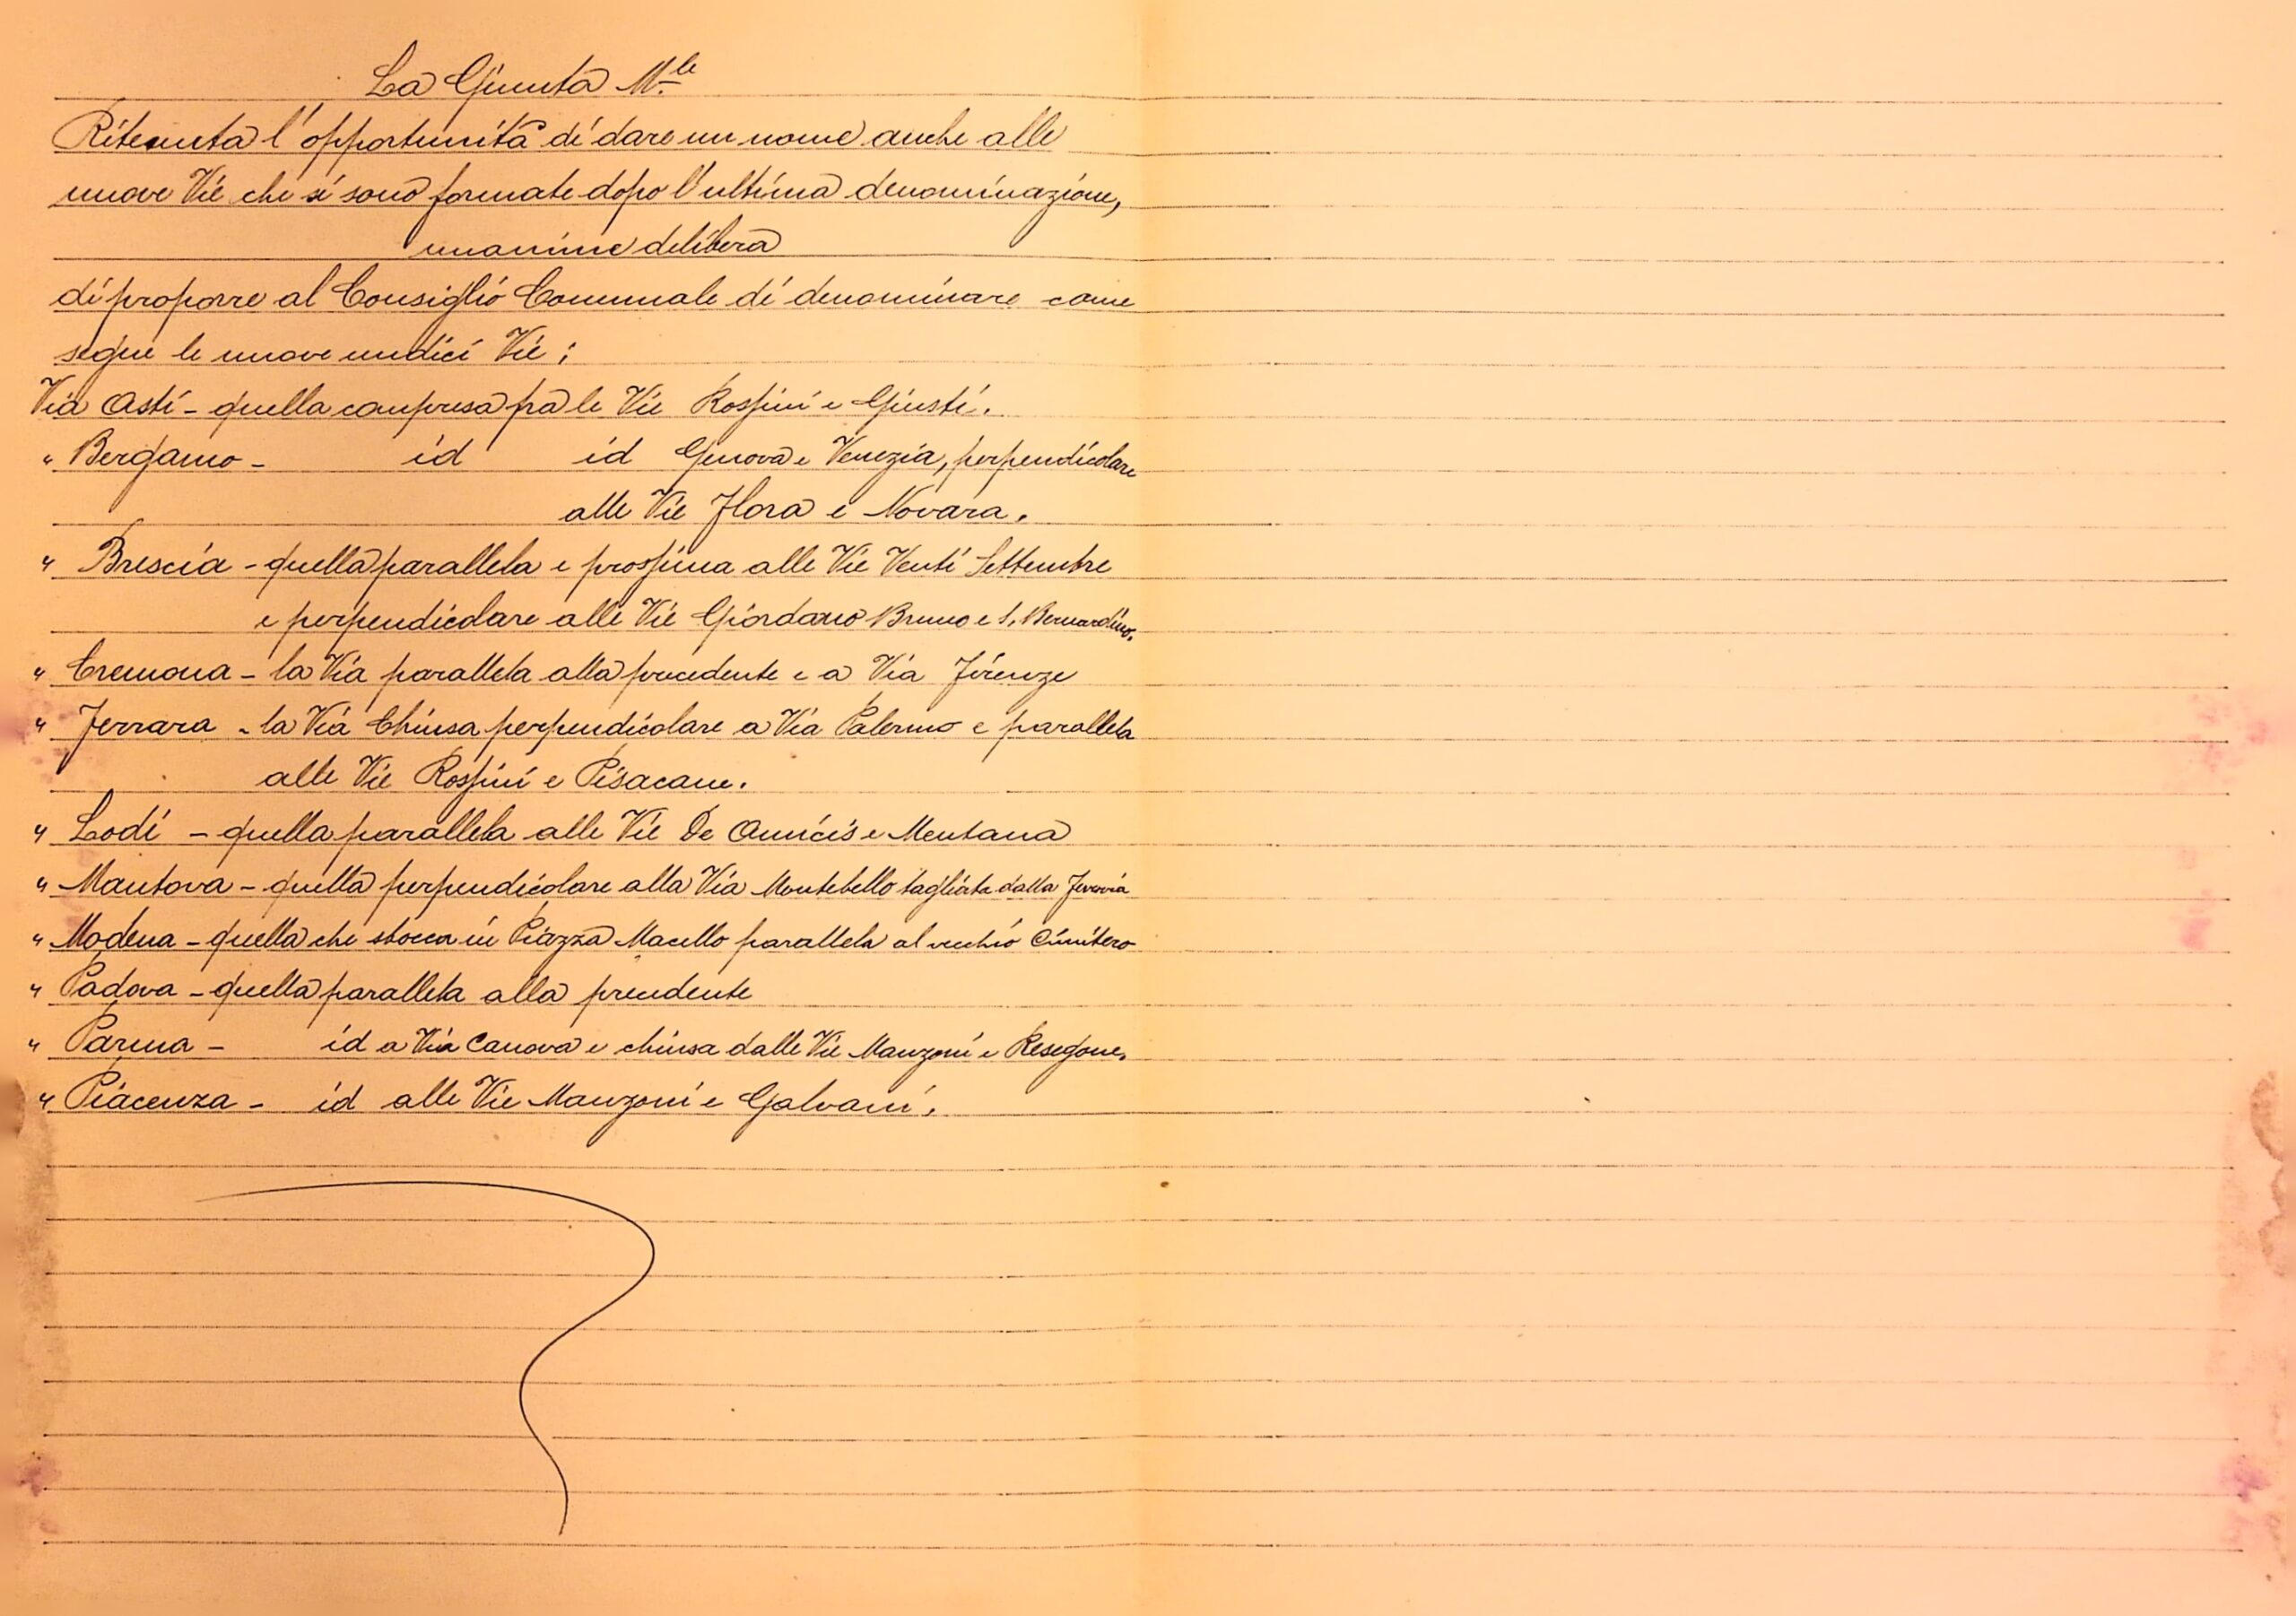 La Giunta M.le
Ritenuta l'opportunità di dare un nome anche alle
nuove Vie che si sono formate dopo l'ultima denominazione,
unanime delibera
di proporre al Consiglio Comunale di denominare come
segue le nuove undici Vie:
Via Asti - quella compresa fra le Vie Rossini e Giusti.
" Bergamo - id id Genova e Venezia, perpendicolare
alle Vie Flora e Novara.
" Brescia - quella parallela e prossima alle Vie Venti Settembre
e perpendicolare alle Vie Giordano Bruno e S. Bernardino.
" Cremona - la Via parallela alla precedente e a Via Firenze
" Ferrara - la Via Chiusa perpendicolare a Via Palermo e parallela
alle Vie Rossini e Pisacane.
" Lodi - quella parallela alle Vie De Amicis e Mentana
" Mantova - quella perpendicolare alla Via Montebello tagliata dalla Ferrovia
" Modena - quella che sbocca in Piazza Macello parallela al vecchio Cimitero
" Padova - quella parallela alla precedente
" Parma - id a Via Canova e chiusa dalle Vie Manzoni e Resegone.
" Piacenza - id alle Vie Manzoni e Galvani.